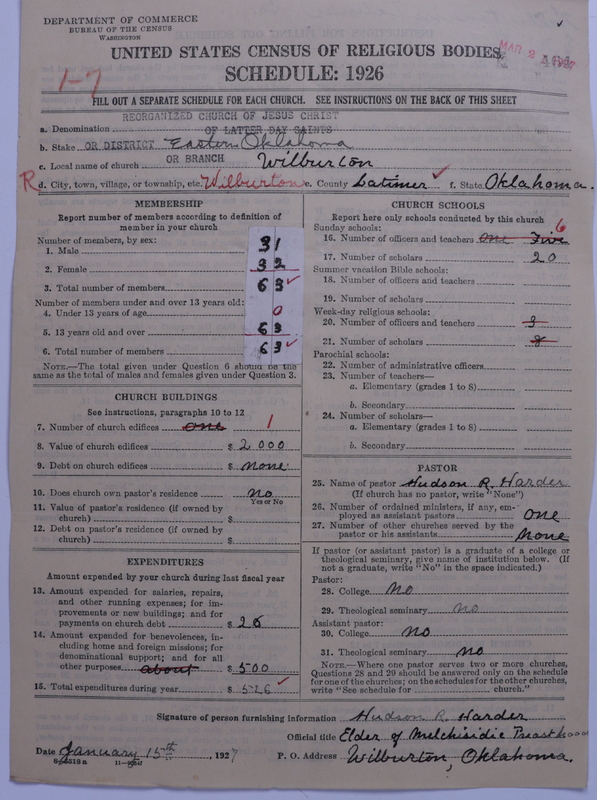 DEPARTMENT OF COMMERCE
BUREAU OF THE CENSUS
WASHINGTON
UNITED STATES CENSUS OF RELIGIOUS BODIES
MAR 2 1927
1-7
SCHEDULE: 1926
FILL OUT A SEPARATE SCHEDULE FOR EACH CHURCH. SEE INSTRUCTIONS ON THE BACK OF THIS SHEET
REORGANIZED CHURCH OF JESUS CHRIST
a. Denomination OF LATTER DAY SAINTS
b. Stake OR DISTRICT Eastern Oklahoma
c. Local name of church OR BRANCH Wilburton
R d. City, town, village, or township, etc. Wilburton e. County Latimer ✓ f. State Oklahoma.
MEMBERSHIP
Report number of members according to definition of
member in your church
Number of members, by sex:
1. Male 31
2. Female 32
3. Total number of members 63 ✓
Number of members under and over 13 years old:
4. Under 13 years of age 0
5. 13 years old and over 63
6. Total number of members 63 ✓
NOTE.—The total given under Question 6 should be the
same as the total of males and females given under Question 3.
CHURCH BUILDINGS
See instructions, paragraphs 10 to 12
7. Number of church edifices one 1
8. Value of church edifices $ 2000
9. Debt on church edifices $ none
10. Does church own pastor's residence no
Yes or No
11. Value of pastor's residence (if owned by
church) $
12. Debt on pastor's residence (if owned by
church) $
EXPENDITURES
Amount expended by your church during last fiscal year
13. Amount expended for salaries, repairs,
and other running expenses; for im-
provements or new buildings; and for
payments on church debt $ 26
14. Amount expended for benevolences, in-
cluding home and foreign missions; for
denominational support; and for all
other purposes about $ 500
15. Total expenditures during year $ 526 ✓
CHURCH SCHOOLS
Report here only schools conducted by this church
Sunday schools:
16. Number of officers and teachers one Five 6
17. Number of scholars 20
Summer vacation Bible schools:
18. Number of officers and teachers
19. Number of scholars
Week-day religious schools:
20. Number of officers and teachers 3
21. Number of scholars 8
Parochial schools:
22. Number of administrative officers
23. Number of teachers—
a. Elementary (grades 1 to 8)
b. Secondary
24. Number of scholars—
a. Elementary (grades 1 to 8)
b. Secondary
PASTOR
25. Name of pastor Hudson R. Harder
(If church has no pastor, write "None")
26. Number of ordained ministers, if any, em-
ployed as assistant pastors one
27. Number of other churches served by the
pastor or his assistants None
If pastor (or assistant pastor) is a graduate of a college or
theological seminary, give name of institution below. (If
not a graduate, write "No" in the space indicated.)
Pastor:
28. College no
29. Theological seminary no
Assistant pastor:
30. College no
31. Theological seminary no
NOTE.—Where one pastor serves two or more churches,
Questions 28 and 29 should be answered only on the schedule
for one of the churches; on the schedules for the other churches,
write "See schedule for church."
Signature of person furnishing information Hudson R. Harder
Official title Elder of Melchisidic Preasthood
Date January 15th, 1927 P. O. Address Wilburton, Oklahoma.